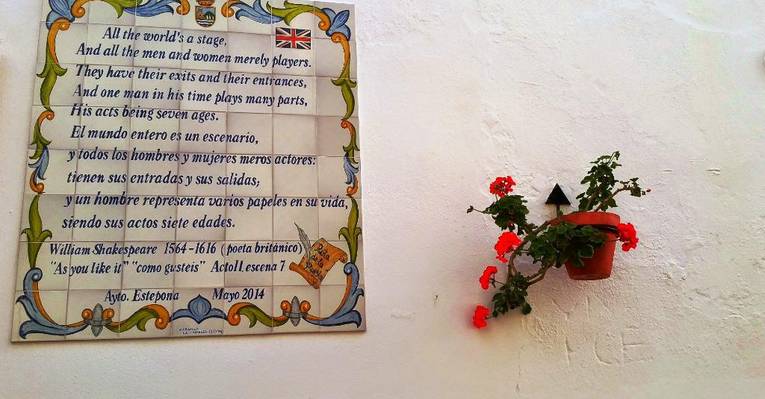 All the world's a stage,
And all the men and women merely players.
They have their exits and their entrances,
And one man in his time plays many parts,
His acts being seven ages.
El mundo entero es un escenario,
y todos los hombres y mujeres meros actores:
tienen sus entradas y sus salidas;
y un hombre representa varios papeles en su vida,
siendo sus actos siete edades.
William Shakespeare 1564-1616 (poeta británico)
"As you like it" "como gusteis" Acto II escena 7
Ruta de la Poesía
Ayto. Estepona Mayo 2014